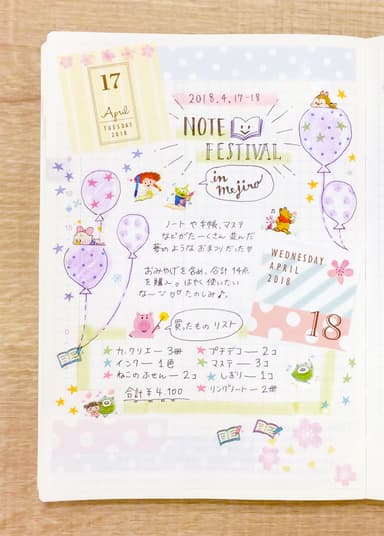 17
April
TUESDAY
2018
2018.4.17-18
NOTE
FESTIVAL
in
mejiro
ノートや手帳、マステ
などがたーくさん並んだ
夢のようなおまつりだった♡
おみやげを含め、合計14点
を購入。はやく使いたい
なー たのしみ♪
WEDNESDAY
APRIL
2018
18
買ったもの リスト
★カ.クリエー3冊 ★プチデコー2コ
★インクー1色 ★マステー3コ
★ねこのふせんー2コ ★しおりー1コ
合計¥4.100 ★リングノートー2冊